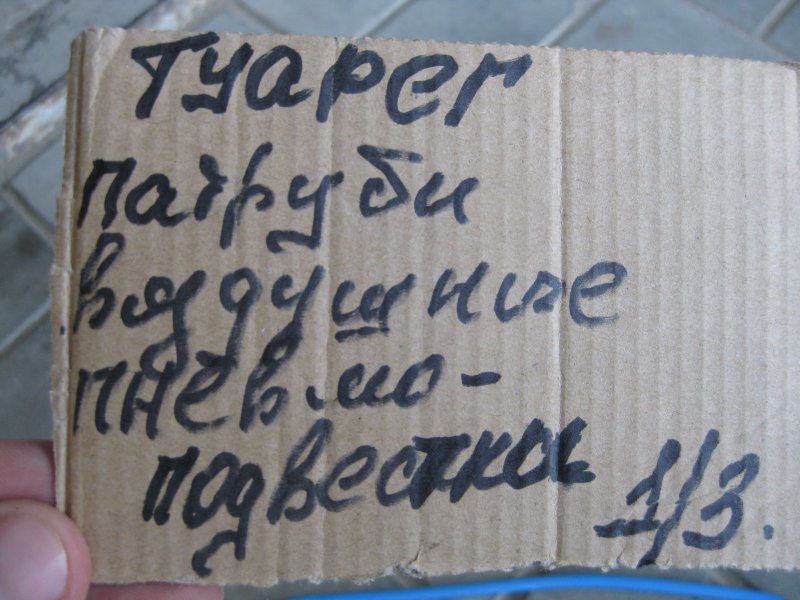 Туарег
патруби
воздушные
пневмо-
подвески 1/3.